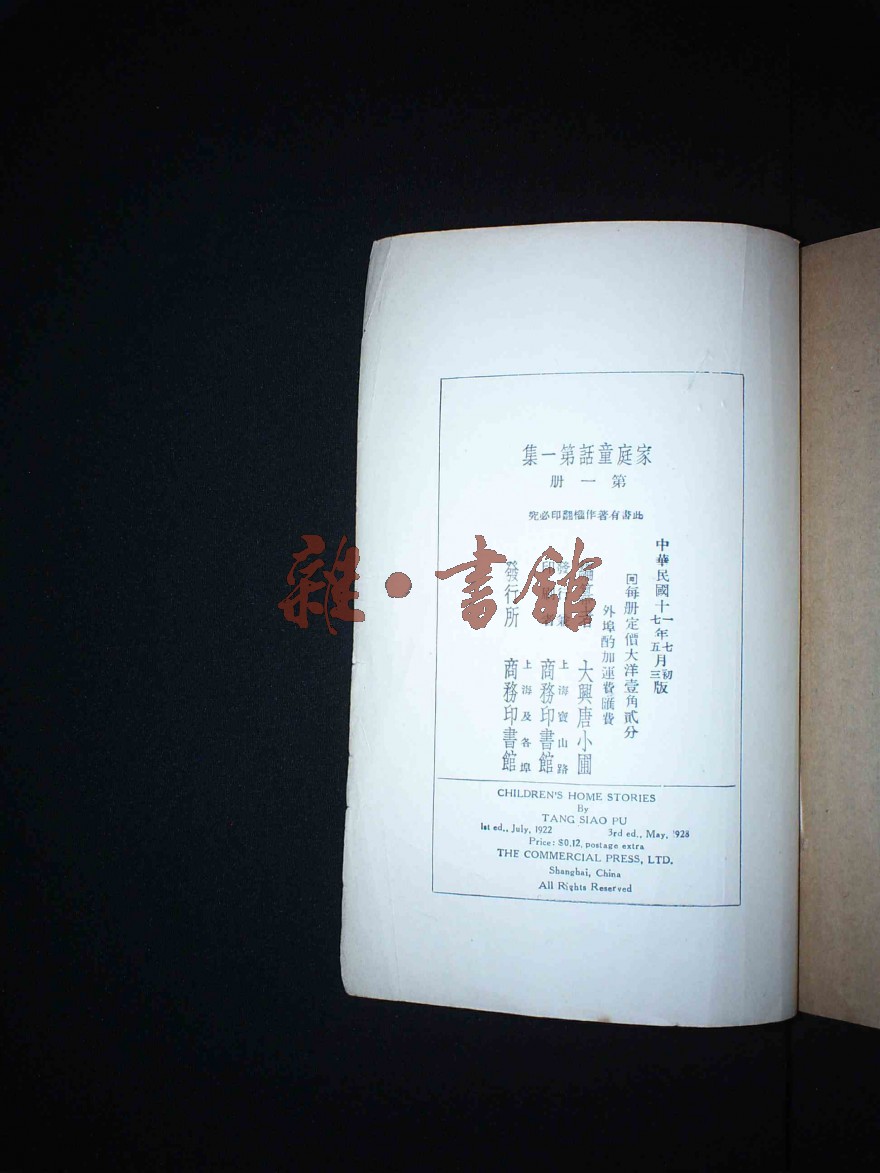 家庭童話第一集
第一册
此書有著作權翻印必究
中華民國十一年七月初版
七年五月三版
每册定價大洋壹角貳分
外埠酌加運費匯費
大興唐小圃
上海寶山路
商務印書館
發行所
上海及各埠
商務印書館
CHILDREN'S HOME STORIES
By
TANG SIAO PU
1st ed., July, 1922 3rd ed., May, 1928
Price: $0.12, postage extra
THE COMMERCIAL PRESS, LTD.
Shanghai, China
All Rights Reserved
雜·書館